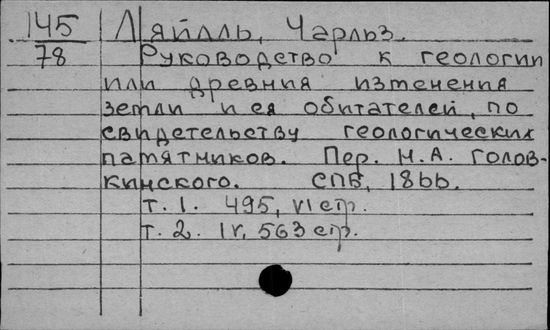 145 Ляйлль, Чарльз.
78 Руководство к геологии
или древния изменения
земли и ея обитателей, по
свидетельству геологических
памятников. Пер. Н.А. Голов-
кинского. СПБ, 1866.
т. 1. 495, VI стр.
т. 2. IV, 563 стр.